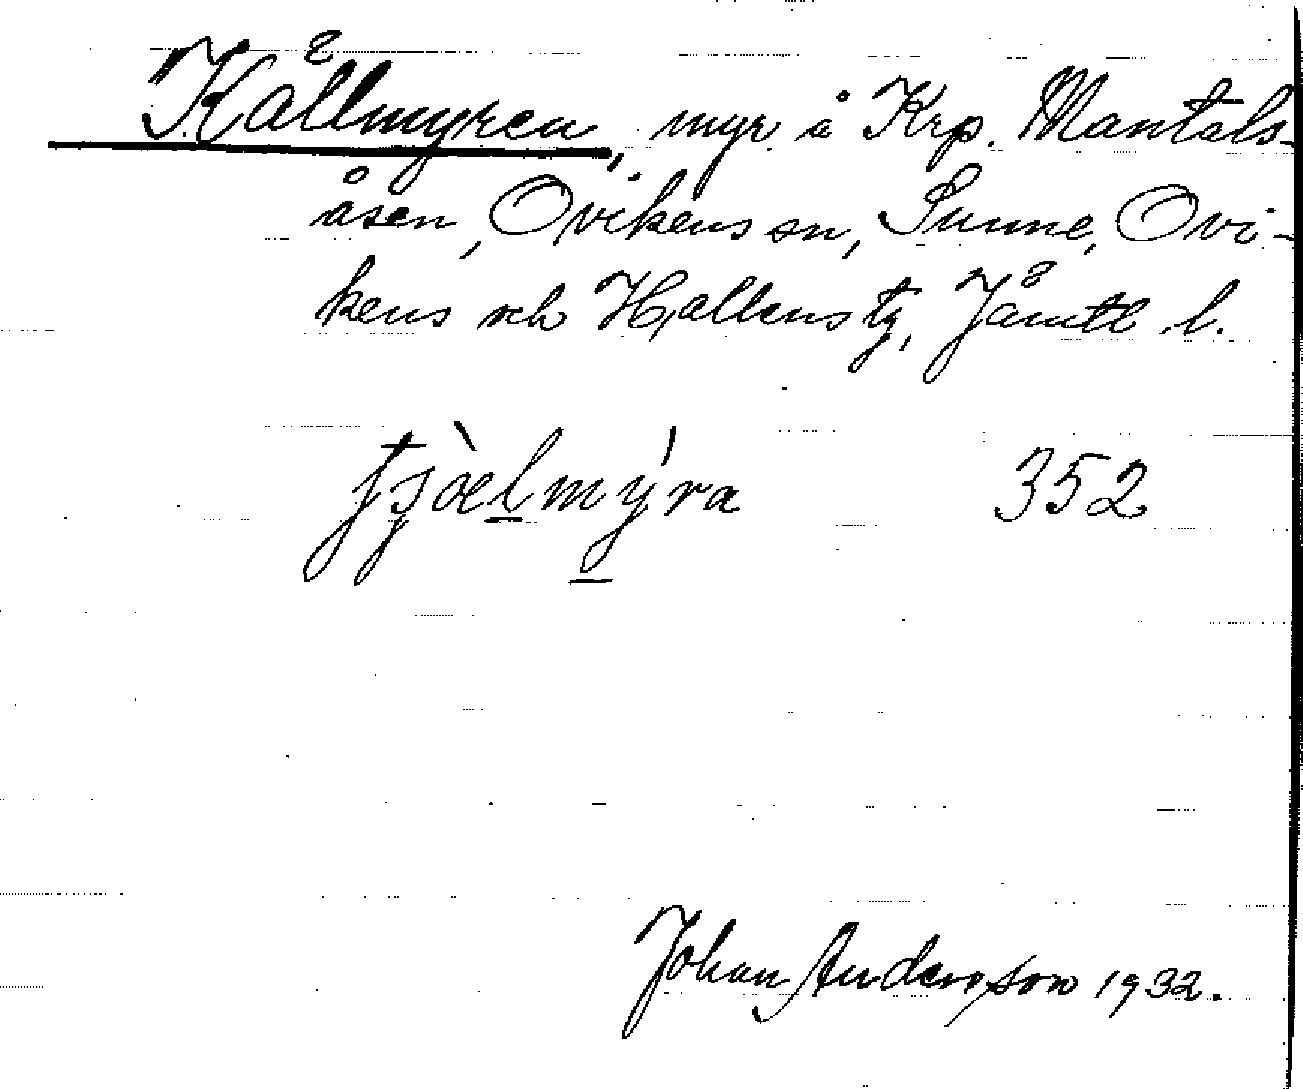 Källmyren, myr å Krp. Mantals-
åsen, Ovikens sn, Sunne, Ovi-
kens och Hallens tg, Jämtl l.
tjæ̀lmýra 352
Johan Anderson 1932.